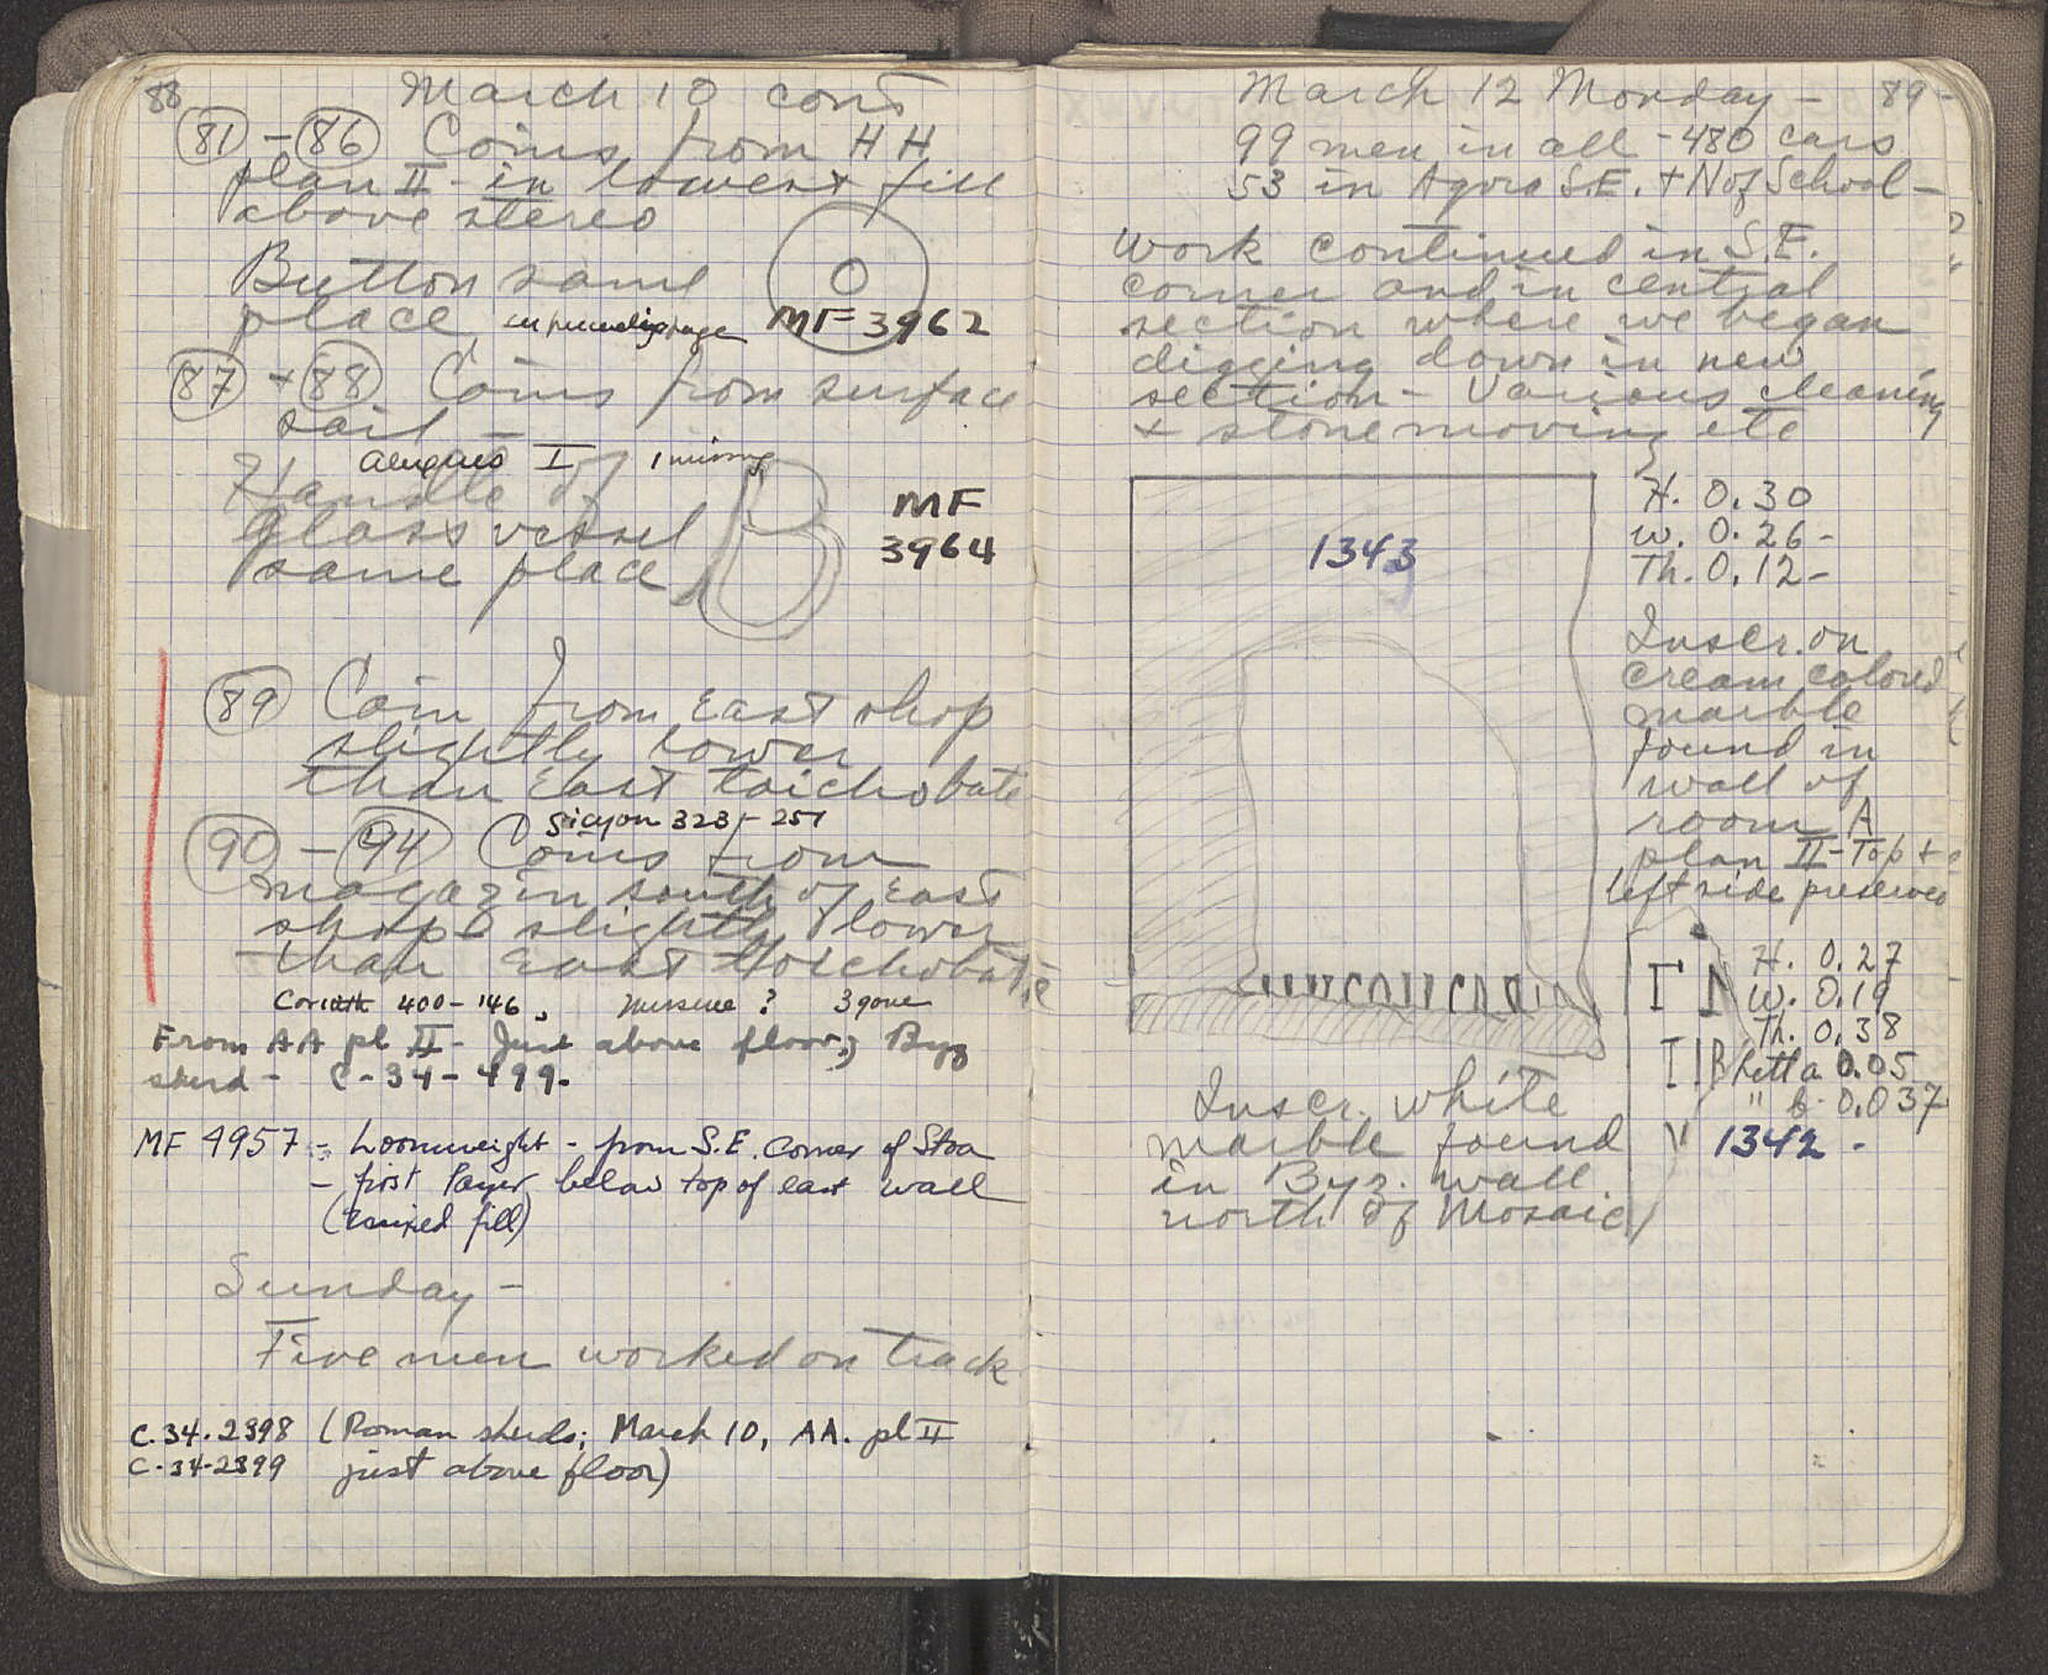 88
March 10 cont
81 - 86 Coins from HH
plan II - in lowest fill
above stereo
Button same
place
MF 3962
87 + 88 Coins from surface
soil -
I 1 missing
Handle of
glass vessel
same place
MF
3964
89 Coin from East shop
slightly lower
than East toichobate
Sicyon 323 - 251
90 - 94 Coins from
magazin south of East
shop slightly lower
than East toichobate
Corinth 400-146, ? 3 gone
From AA pl II - Just above floor; Byz
sherd - C-34-499.
MF 4957 - Loomweight - from S.E. Corner of Stoa
- first layer below top of east wall
(mixed fill)
Sunday -
Five men worked on track
C.34.2398 (Roman sherds; March 10, AA. pl II
C-34-2399 just above floor)
March 12 Monday - 89-
99 men in all - 480 cars
53 in Agora S.E. + N of School -
Work continued in S.E.
corner and in central
section where we began
digging down in new
section - Various cleaning
+ stone moving etc
1343
H. 0.30
W. 0.26-
Th. 0.12-
Inscr. on
cream colored
marble
found in
wall of
room A
plan II - Top +
left side preserved
H. 0.27
W. 0.19
Th. 0.38
lett a. 0.05
" b. 0.037
1342 -
Inscr. white
marble found
in Byz. wall
north of Mosaic